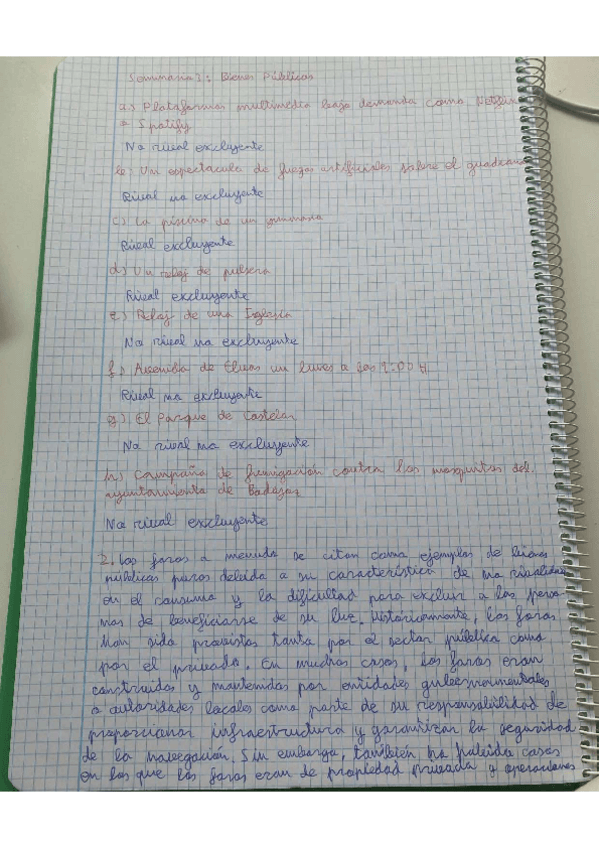 Seminario 1: Bienes Públicos
a) Plataformas multimedia bajo demanda como Netflix
o Spotify
No rival excluyente
b) Un espectaculo de fuegos artificiales sobre el guadiana
Rival no excluyente
c) La piscina de un gimnasio
Rival excluyente
d) Un reloj de pulsera
Rival excluyente
e) Reloj de una Iglesia
No rival no excluyente
f) Avenida de Elvas un lunes a las
Rival no excluyente
g) El Parque de Castelar
No rival no excluyente
h) Campaña de fumigación contra los mosquitos del
ayuntamiento de Badajoz
No rival excluyente
2. Los faros a menudo se citan como ejemplos de bienes
públicos puros debido a su característica de no rivalidad
en el consumo y la dificultad para excluir a las perso
nas de beneficiarse de su luz. Históricamente, los faros
han sido provistos tanto por el sector público como
por el privado. En muchos casos, los faros eran
construidos y mantenidos por entidades gubernamentales
o autoridades locales como parte de su responsabilidad de
proporcionar infraestructura y garantizar la seguridad
de la navegación. Sin embargo, también ha habido casos
en los que los faros eran de propiedad privada y operaciones